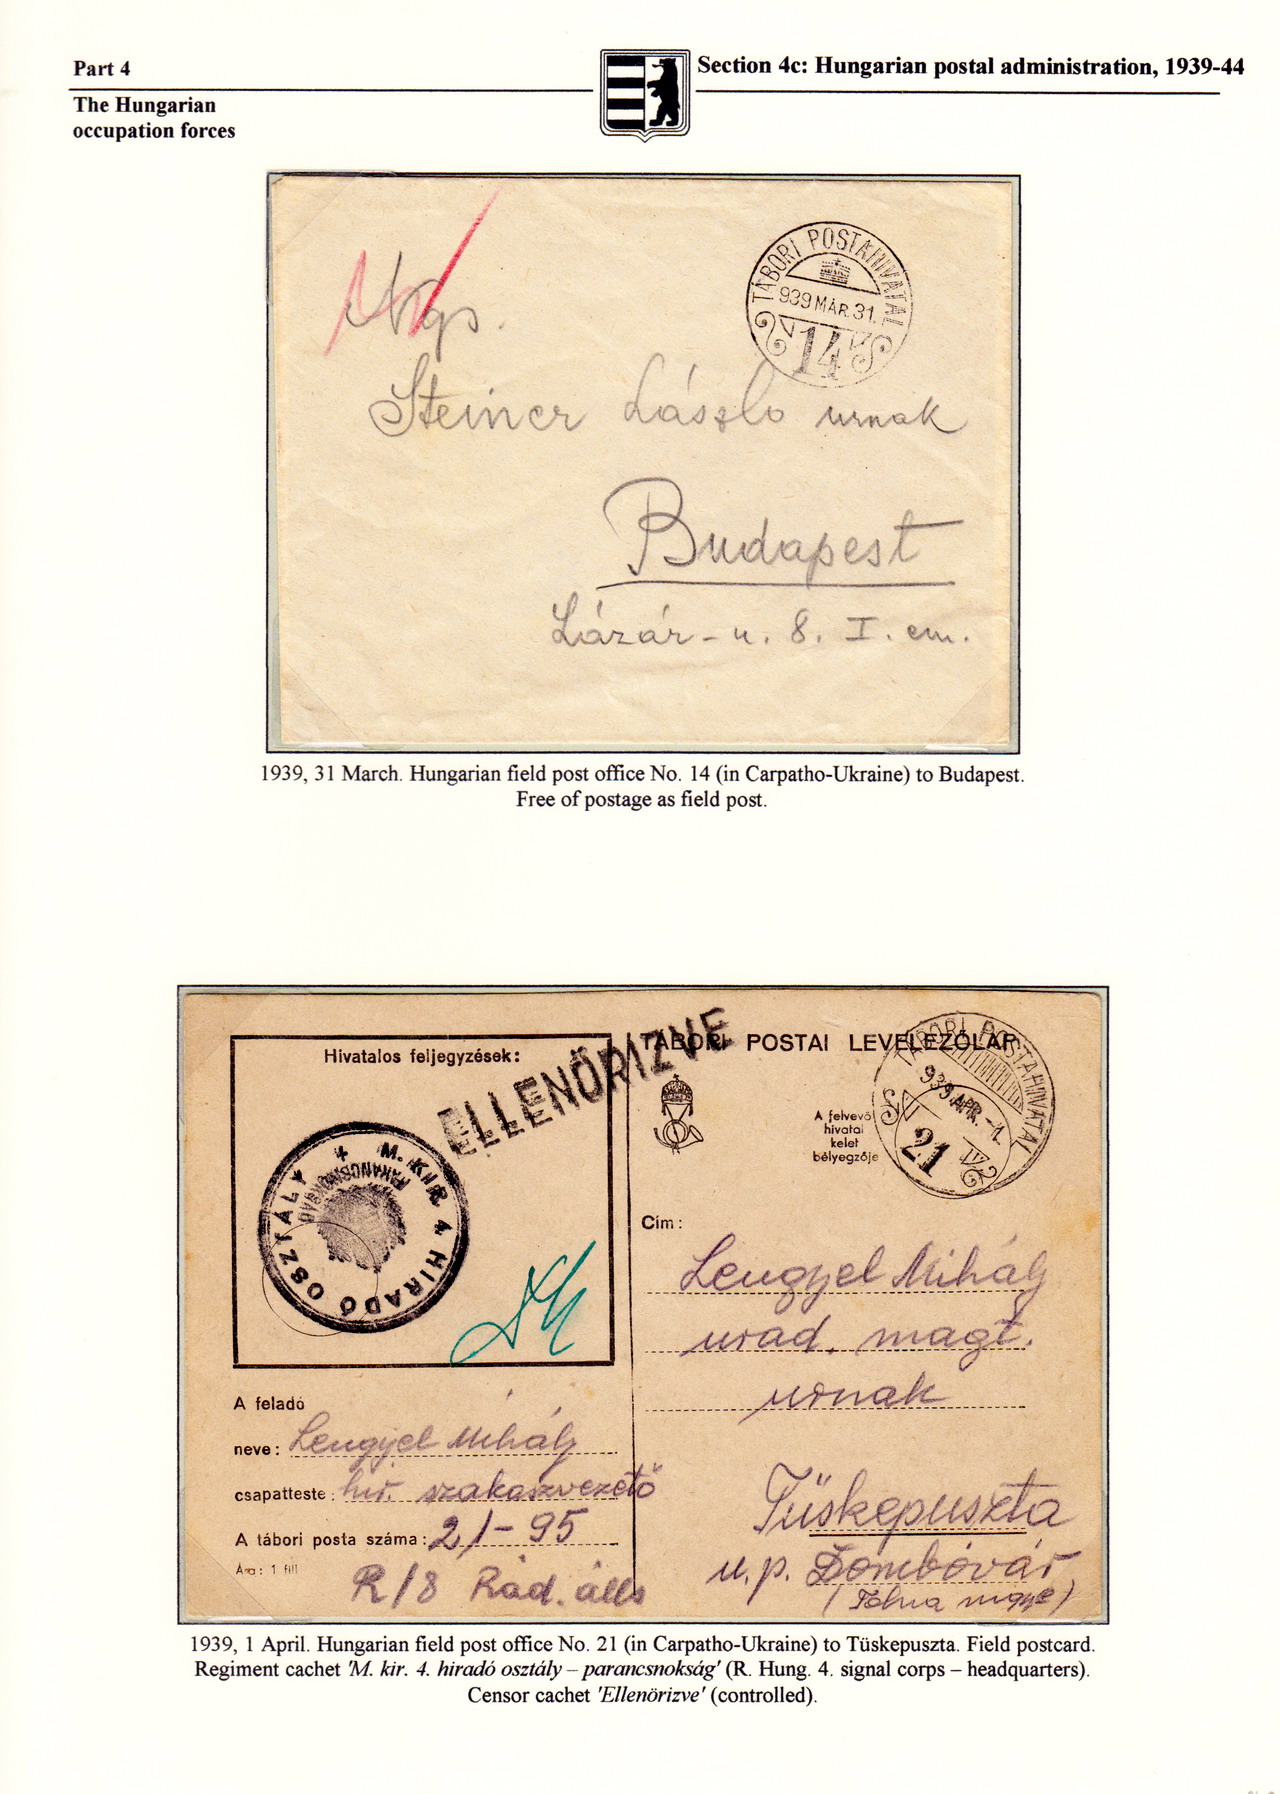 Part 4
Section 4c: Hungarian postal administration, 1939-44
The Hungarian
occupation forces
TÁBORI POSTAHIVATAL
939 MÁR. 31.
14
Ngs.
Steiner László urnak
Budapest
Lázár-u. 8. I. em.
1939, 31 March. Hungarian field post office No. 14 (in Carpatho-Ukraine) to Budapest.
Free of postage as field post.
Hivatalos feljegyzések:
ELLENŐRIZVE
M. KIR. 4 HIRADÓ OSZTÁLY
PARANCSNOKSÁG
TÁBORI POSTAI LEVELEZŐLAP
A felvevő
hivatal
kelet
bélyegzője
TÁBORI POSTAHIVATAL
939 APR. -1.
21
Cím:
Lengyel Mihály
urad. magt.
urnak
Tüskepuszta
u.p. Dombóvár
(Tolna megye)
A feladó
neve: Lengyel Mihály
csapatteste: hir. szakaszvezető
A tábori posta száma: 21-95
Ára: 1 fill
R/8 Rád. áll.
1939, 1 April. Hungarian field post office No. 21 (in Carpatho-Ukraine) to Tüskepuszta. Field postcard.
Regiment cachet 'M. kir. 4. hiradó osztály – parancsnokság' (R. Hung. 4. signal corps – headquarters).
Censor cachet 'Ellenörizve' (controlled).